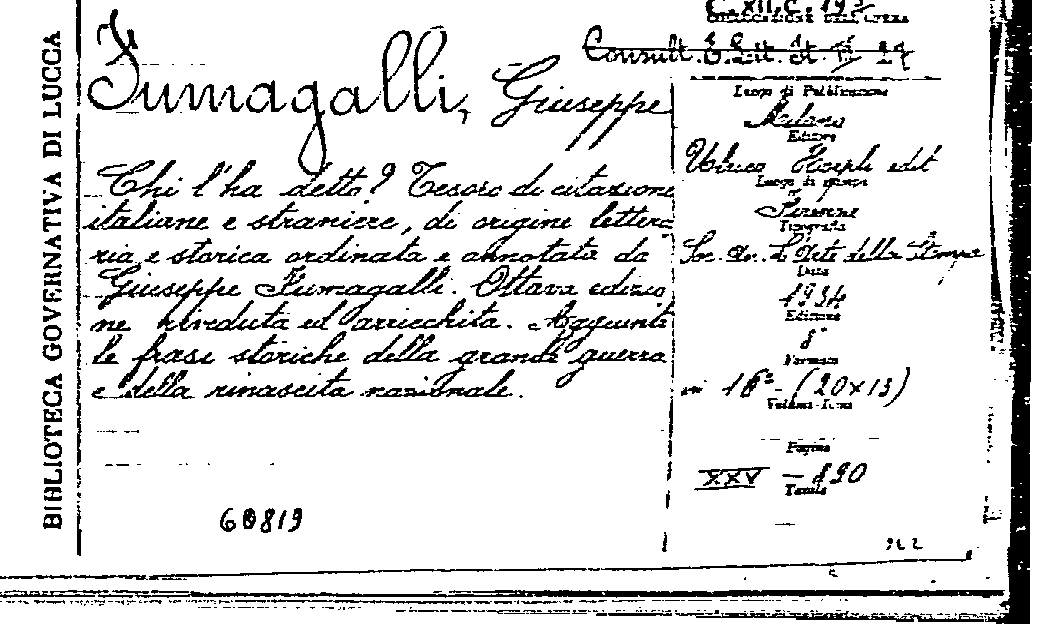 C.XII.C.19
COLLOCAZIONE DELL'OPERA
Consult. E. Lett. It. 27
BIBLIOTECA GOVERNATIVA DI LUCCA
Fumagalli, Giuseppe
Chi l'ha detto? Tesoro di citazione
italiane e straniere, di origine lettera=
ria e storica ordinata e annotata da
Giuseppe Fumagalli. Ottava edizio
ne riveduta ed arricchita. Aggiunte
le frasi storiche della grande guerra
e della rinascita nazionale.
60819
Luogo di Pubblicazione
Milano
Editore
Ulrico Hoepli edit
Luogo di stampa
Firenze
Tipografia
Soc. An. L'Arte della Stampa
Data
1934
Edizione
8ª
Formato
in 16º - (20x13)
Volume-Tomo
Pagine
XXV - 890
Tavole